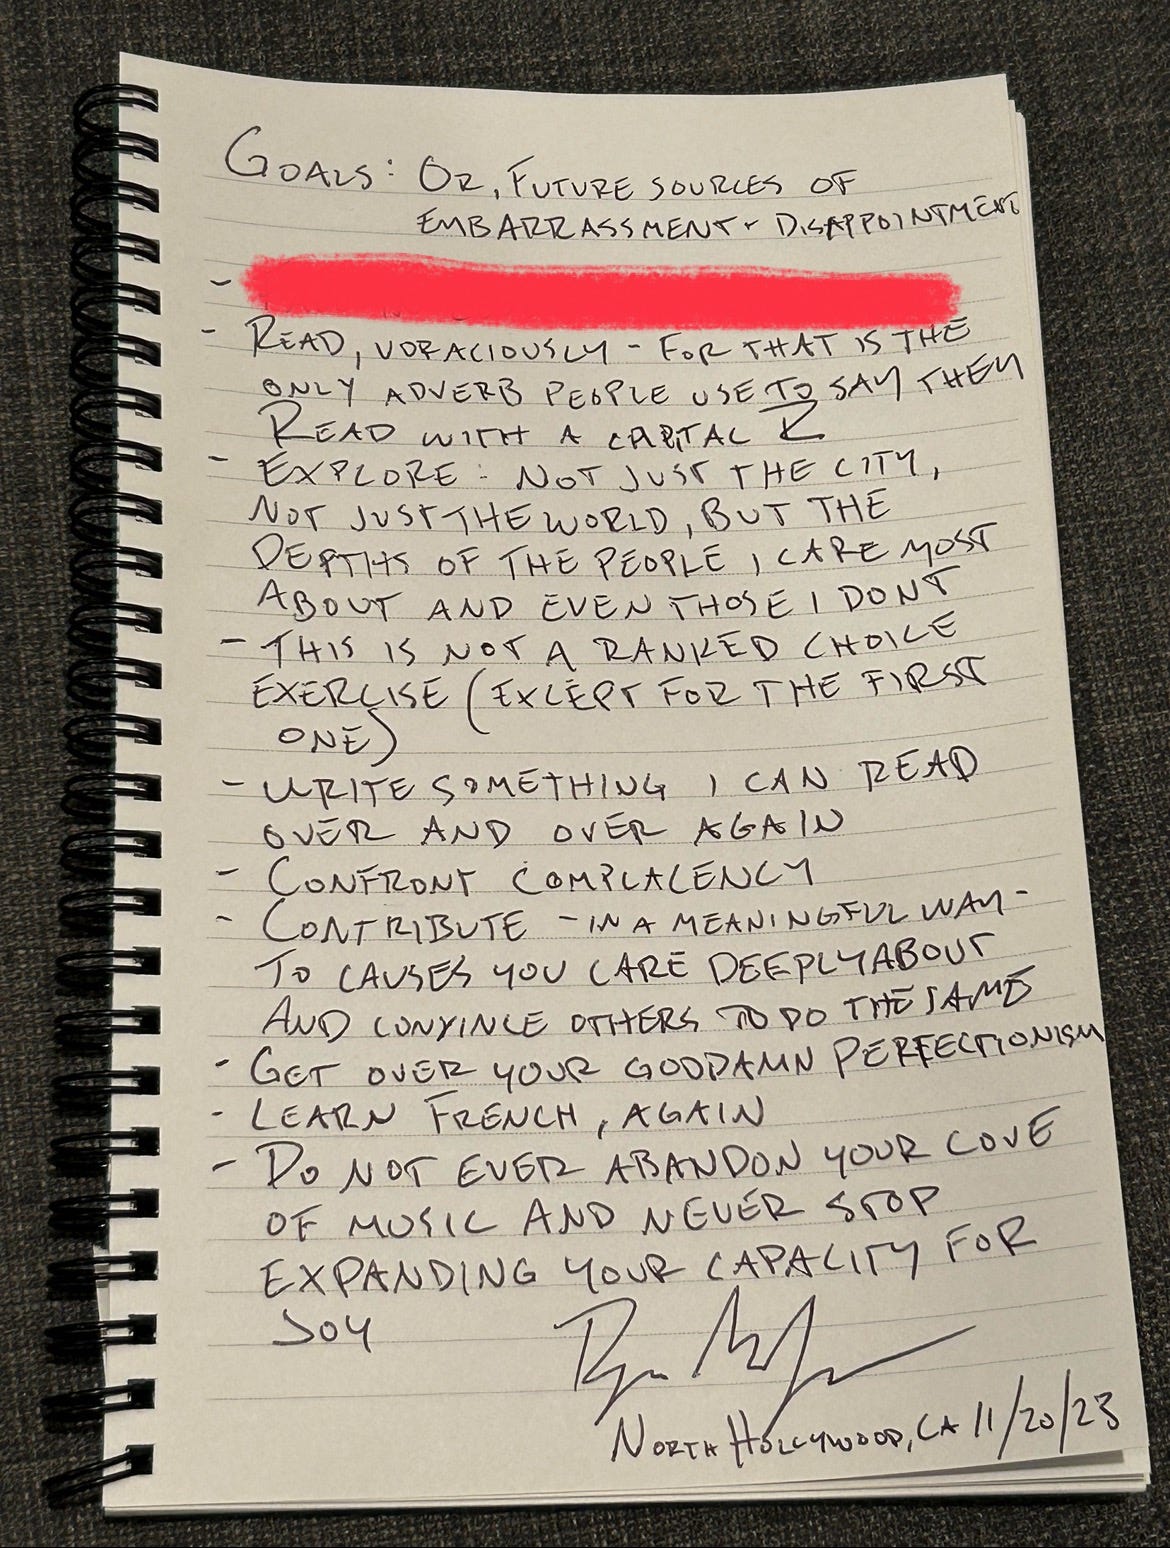 GOALS: OR, FUTURE SOURCES OF
EMBARRASSMENT + DISAPPOINTMENT
-
- READ, VORACIOUSLY - FOR THAT IS THE
ONLY ADVERB PEOPLE USE TO SAY THEY
READ WITH A CAPITAL R
- EXPLORE: NOT JUST THE CITY,
NOT JUST THE WORLD, BUT THE
DEPTHS OF THE PEOPLE I CARE MOST
ABOUT AND EVEN THOSE I DONT
- THIS IS NOT A RANKED CHOICE
EXERCISE (EXCEPT FOR THE FIRST
ONE)
- WRITE SOMETHING I CAN READ
OVER AND OVER AGAIN
- CONFRONT COMPLACENCY
- CONTRIBUTE - IN A MEANINGFUL WAY -
TO CAUSES YOU CARE DEEPLY ABOUT
AND CONVINCE OTHERS TO DO THE SAME
- GET OVER YOUR GODDAMN PERFECTIONISM
- LEARN FRENCH, AGAIN
- DO NOT EVER ABANDON YOUR LOVE
OF MUSIC AND NEVER STOP
EXPANDING YOUR CAPACITY FOR
JOY
NORTH HOLLYWOOD, CA 11/20/23